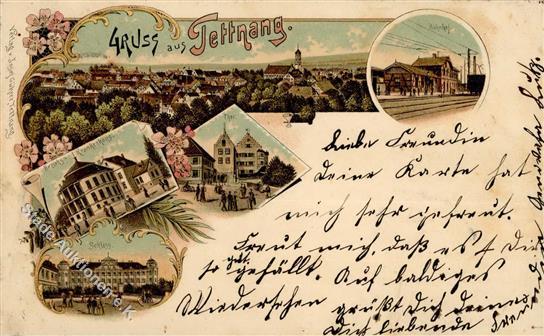 GRUSS aus Tettnang.
Bahnhof
Thor
Schloss
Liebe Freundin
Deine Karte hat
mich sehr gefreut.
Freut mich, daß es Dir
so gut gefällt. Auf baldiges
Wiedersehen grüßt Dich Deine
Dich liebende